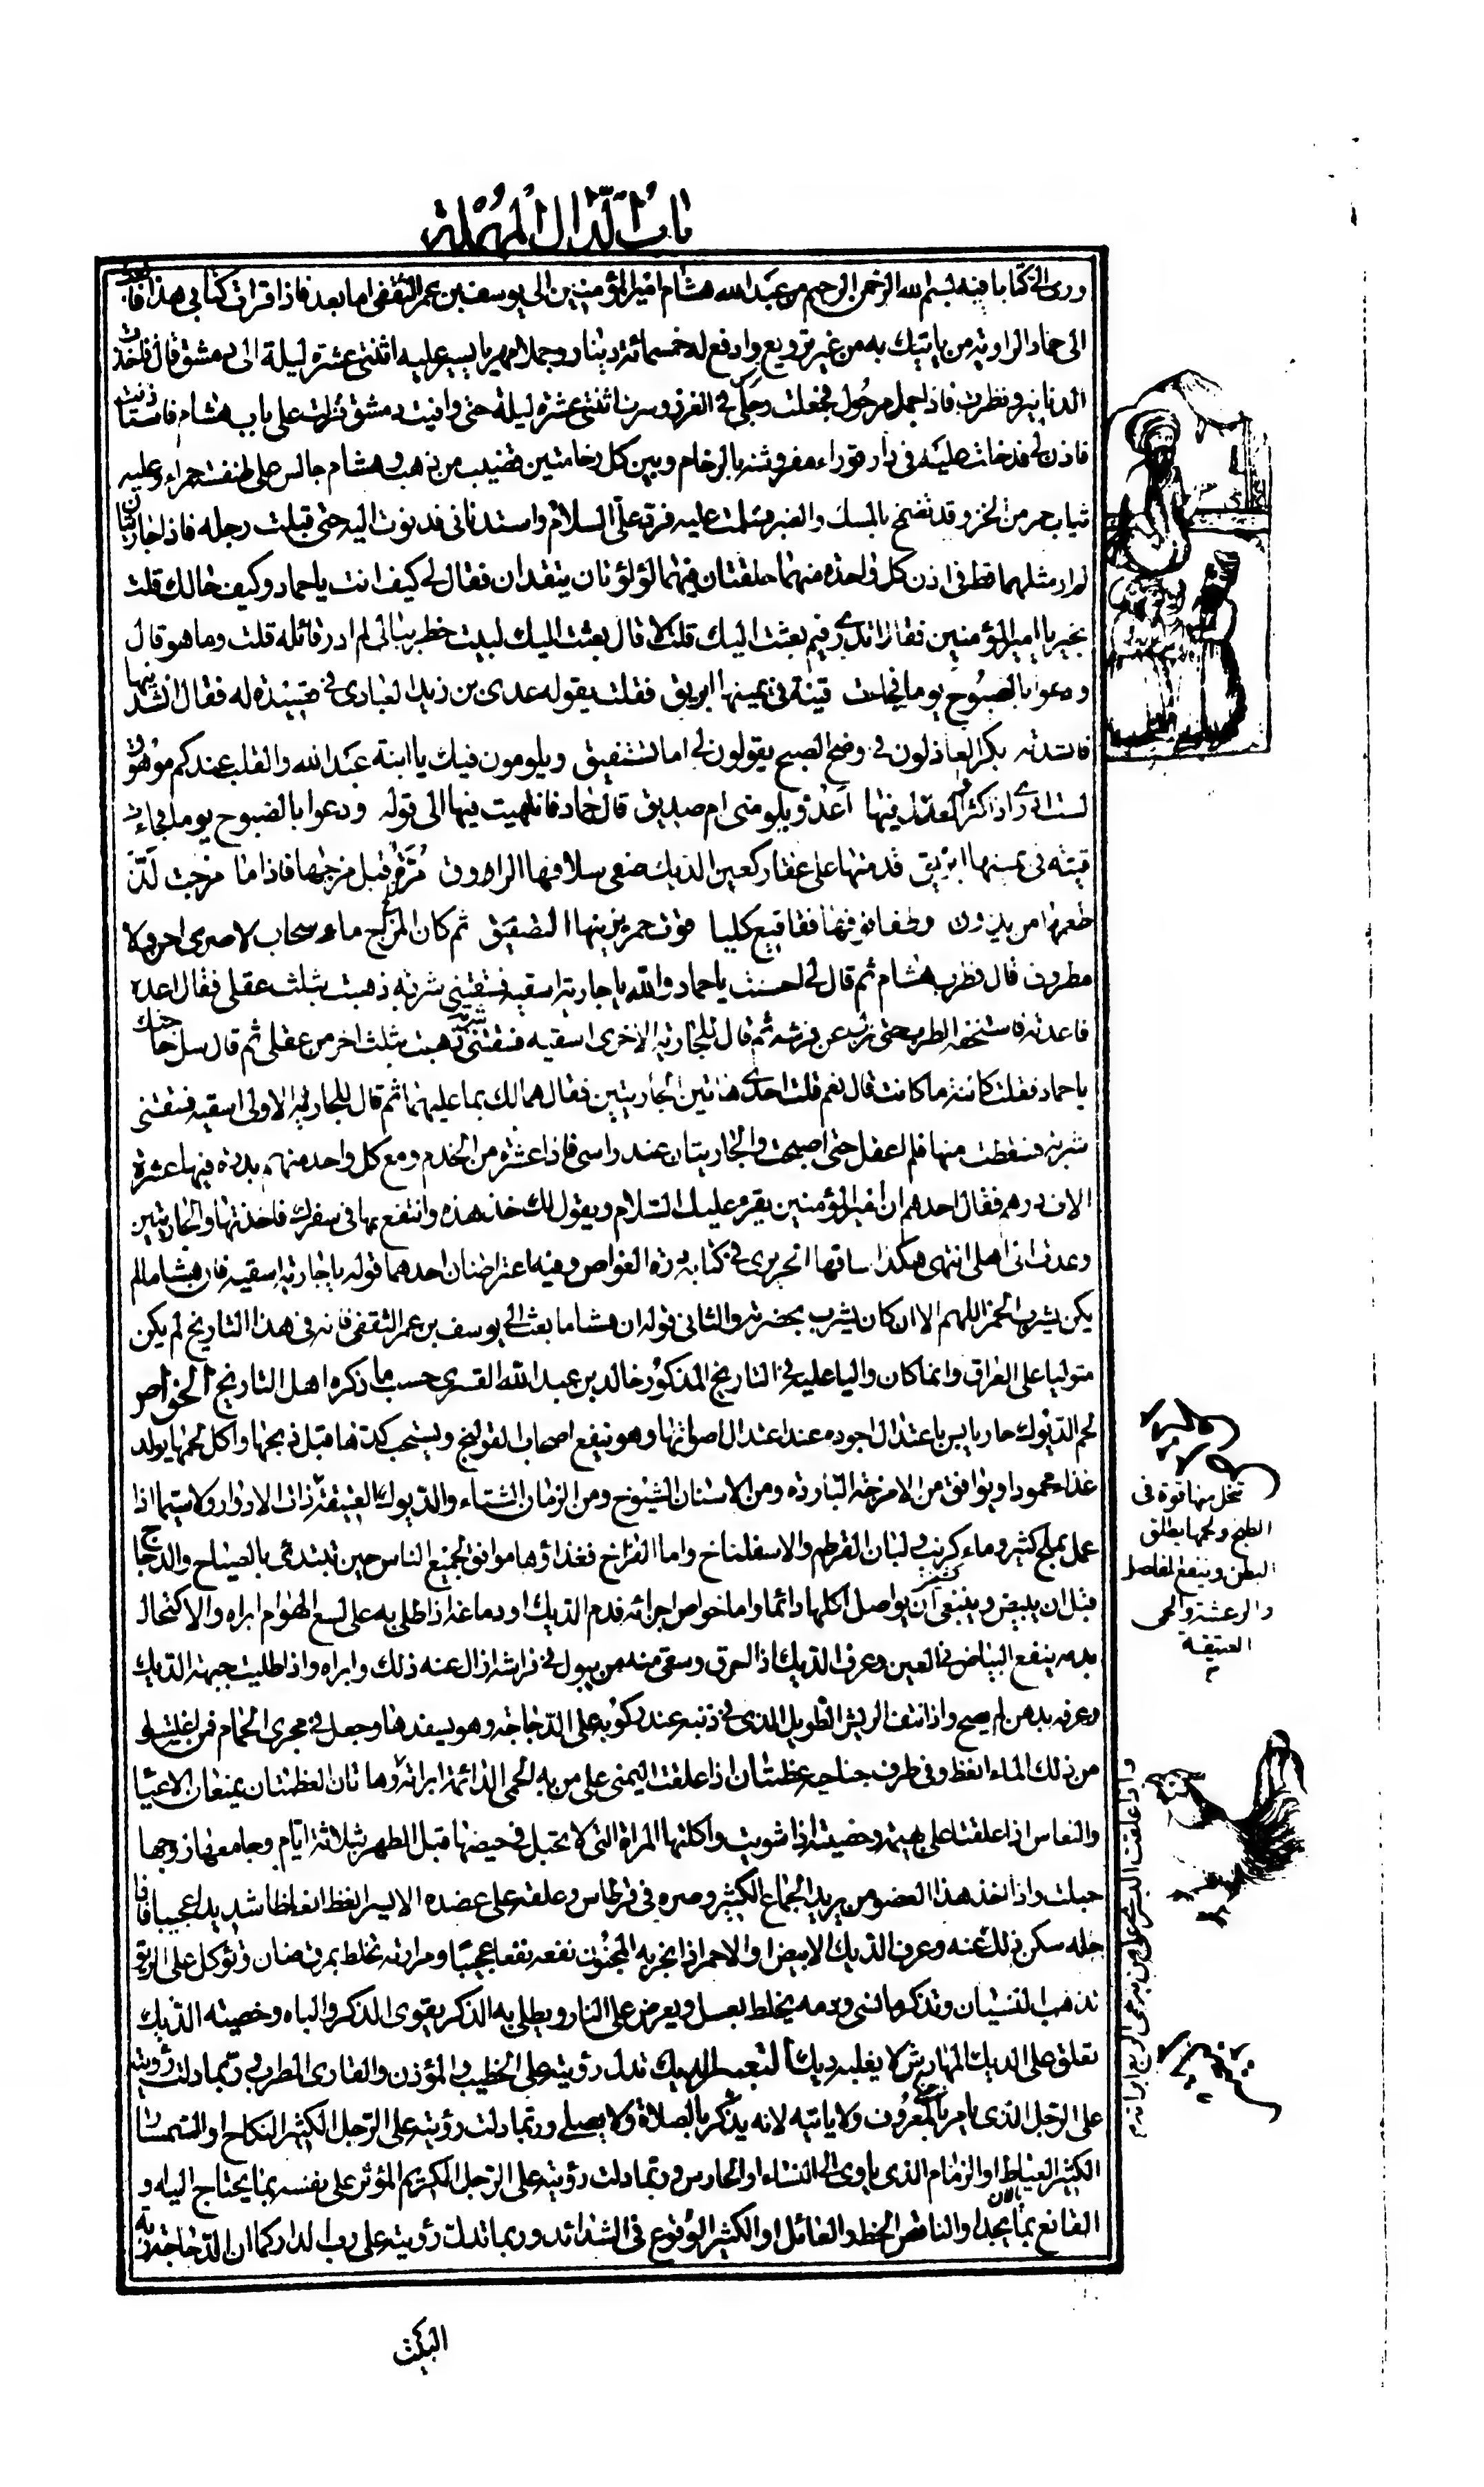 باب الدال المهملة
ورمى الي كتابا فيه بسم الله الرحمن الرحيم من عبد الله هشام امير المؤمنين الى يوسف بن عمر الثقفي اما بعد فاذا قرات كتابي هذا فابعث
الى حماد الراوية من ياتيك به من غير ترويع وادفع له خمسمائة دينار وجملا مهريا يسير عليه اثنتى عشرة ليلة الى دمشق قال فاخذت
الدنانير ونظرت فاذا جمل مرحول فجعلت رجلي في الغرز وسرت اثنتى عشرة ليلة حتى وافيت دمشق نزلت على باب هشام فاستاذنت
فاذن لي فدخلت عليه في دار قوراء مفروشة بالرخام وبين كل رخامتين قضيب من ذهب وهشام جالس على طنفسة حمراء وعليه
ثياب حمر من الخز وقد تضمخ بالمسك والعنبر فسلمت عليه فرد علي السلام واستدناني فدنوت اليه حتى قبلت رجله فاذا جاريتان
لم ار مثلهما قط في اذن كل واحدة منهما حلقتان فيهما لؤلؤتان يتقدان فقال لي كيف انت يا حماد وكيف حالك قلت
بخير يا امير المؤمنين فقال اتدري فيم بعثت اليك قلت لا قال بعثت اليك لبيت خطر ببالي لم ادر قائله قلت وما هو قال
ودعوا بالصبوح يوما فجاءت قينة في يمينها ابريق فقلت يقوله عدي بن زيد العبادي في قصيدة له فقال انشدنيها
فانشدته بكر العاذلون في وضح الصبح يقولون لي اما تستفيق ويلومون فيك يا ابنة عبد الله والقلب عندكم موهوق
لست ادري اذ اكثروا العذل فيها اعدو يلومني ام صديق قال حماد فانتهيت فيها الى قوله ودعوا بالصبوح يوما فجاءت
قينة في يمينها ابريق قدمتها على عقار كعين الديك صفى سلافها الراووق مرة قبل مزجها فاذا ما مزجت لذ
طعمها من يذوق وطفا فوقها فقاقيع كاليا قوت حمر يزينها التصفيق ثم كان المزاج ماء سحاب لا صرى اجن ولا
مطروق قال فطرب هشام ثم قال لي احسنت يا حماد والله يا جارية اسقيه فسقتني شربة ذهبت بثلث عقلي فقال اعده
فاعدته فاستخفه الطرب حتى نزل عن فرشه ثم قال للجارية الاخرى اسقيه فسقتني شربة ذهبت بثلث اخر من عقلي ثم قال سل حاجتك
يا حماد فقلت كائنة ما كانت قال نعم قلت احدى هاتين الجاريتين فقال هما لك بما عليهما ثم قال للجارية الاولى اسقيه فسقتني
شربة فسقطت منها فلم اعقل حتى اصبحت والجاريتان عند راسي فاذا عشرة من الخدم ومع كل واحد منهم بدرة فيها عشرة
الاف درهم فقال احدهم ان امير المؤمنين يقرء عليك السلام ويقول لك خذ هذه وانتفع بها في سفرك فاخذتها والجاريتين
وعدت الى اهلي انتهى هكذا ساقها الحريري في كتابه درة الغواص وفيه اعتراضان احدهما قوله يا جارية اسقيه فان هشاما لم
يكن يشرب الخمر اللهم الا ان كان يشرب بحضرته والثاني قوله ان هشاما بعث الى يوسف بن عمر الثقفي فانه في هذا التاريخ لم يكن
متوليا على العراق وانما كان واليا عليه في التاريخ المذكور خالد بن عبد الله القسري حسب ما ذكره اهل التاريخ الخواص
لحم الديوك حار يابس باعتدال اجوده عند اعتدال اصواتها وهو ينفع اصحاب القولنج ويستحب كدها قبل ذبحها واكل لحمها يولد
غذاء محمودا ويوافق من الامزجة الباردة ومن الاسنان الشيوخ ومن الزمان الشتاء والديوك العتيقة ذات الادوار ولا سيما اذا
عمل بملح كثير وماء كرنب ولباب القرطم والاسفاناخ واما الفراخ فغذاؤها موافق لجميع الناس حين تبتدئ بالصياح والدجاج
قبل ان يبيض وينبغي ان يواصل اكلها دائما واما خواص اجزائه فدم الديك او دماغه اذا طلي به على لسع الهوام ابراه والاكتحال
بدمه ينفع البياض في العين وعرف الديك اذا احرق وسقي منه من يبول في فراشه ازال عنه ذلك وابراه واذا طليت جبهة الديك
وعرفه بدهن لم يصح واذا نتف الريش الطويل الذي في ذنبه عند ركوبه على الدجاجة وهو يسفدها وجعل في مجرى الحمام فمن اغتسل
من ذلك الماء انعظ وفي طرف جناحيه عظمتان اذا علقت اليمنى على من به الحمى الدائمة ابراته وهاتان العظمتان يمنعان الاعيا
والنعاس اذا علقتا على بهيمة وخصيته اذا شويت واكلتها المراة التي لا تحبل في حيضها قبل الطهر بثلاثة ايام وجامعها زوجها
حبلت واذا اتخذ هذا العضو من يريد الجماع الكثير وصره في قرطاس وعلقه على عضده الايسر انعظ انعاظا شديدا عجيبا فاذا
حله سكن ذلك عنه وعرف الديك الابيض او الاحمر اذا بخر به المجنون نفعه نفعا عجيبا ومرارته تخلط بمرق ضان وتؤكل على الريق
تذهب النسيان وتذكر ما نسي ودمه يخلط بعسل ويعرض على النار ويطلى به الذكر يقوى الذكر والباه وخصيته الديك
تعلق على الديك المهارش لا يغلبه ديك التعبير الديك تدل رؤيته على الخطيب والمؤذن والقارئ المطرب وربما دلت رؤيته
على الرجل الذي يامر بالمعروف ولا ياتيه لانه يذكر بالصلاة ولا يصلي وربما دلت رؤيته على الرجل الكثير النكاح او السمسار
الكثير العياط او الزمام الذي ياوي الى النساء او الحارس وربما دلت رؤيته على الرجل الكريم المؤثر على نفسه بما يحتاج اليه و
القانع بما يجد او الناقص الحظ والعائل او الكثير الوقوع في الشدائد وربما تدل رؤيته على رب الدار كما ان الدجاجة ربة
البيت
تحل منها قوة في
الطبخ ولحمها يطلق
البطن وينفع المفاصل
والرعشة والحمى
العتيقة